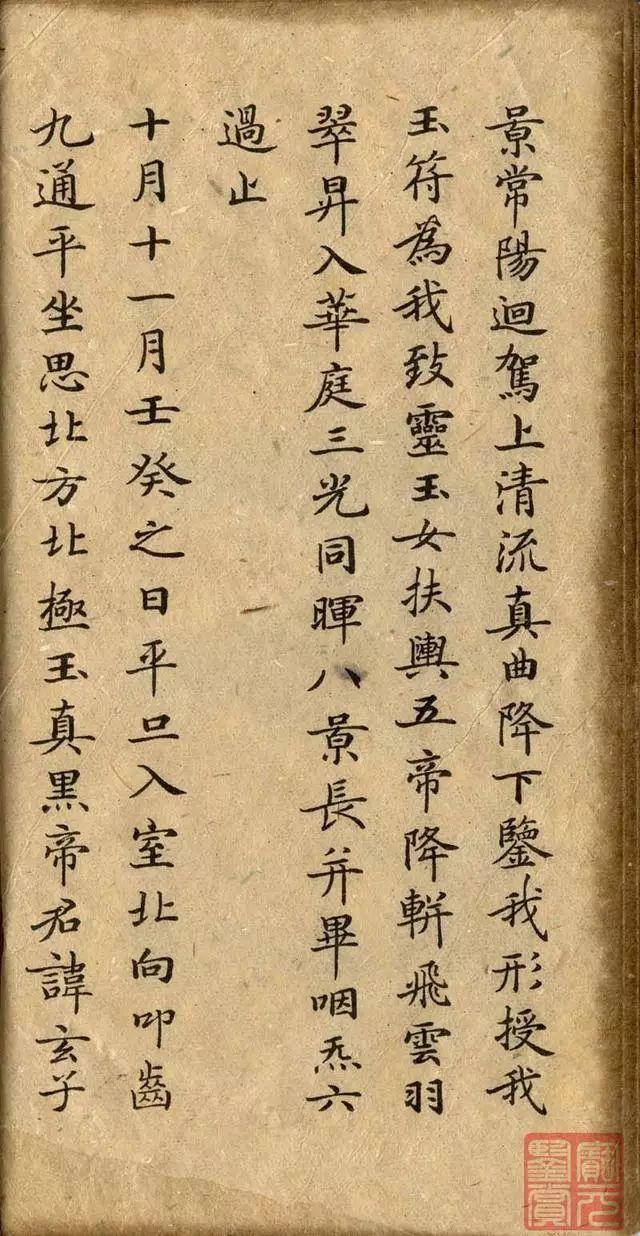 景常陽迴駕上清流真曲降下鑒我形授我
玉符為我致靈玉女扶輿五帝降軿飛雲羽
翠昇入華庭三光同暉八景長并畢咽炁六
過止
十月十一月壬癸之日平旦入室北向叩齒
九通平坐思北方北極玉真黑帝君諱玄子
寶元鑒賞